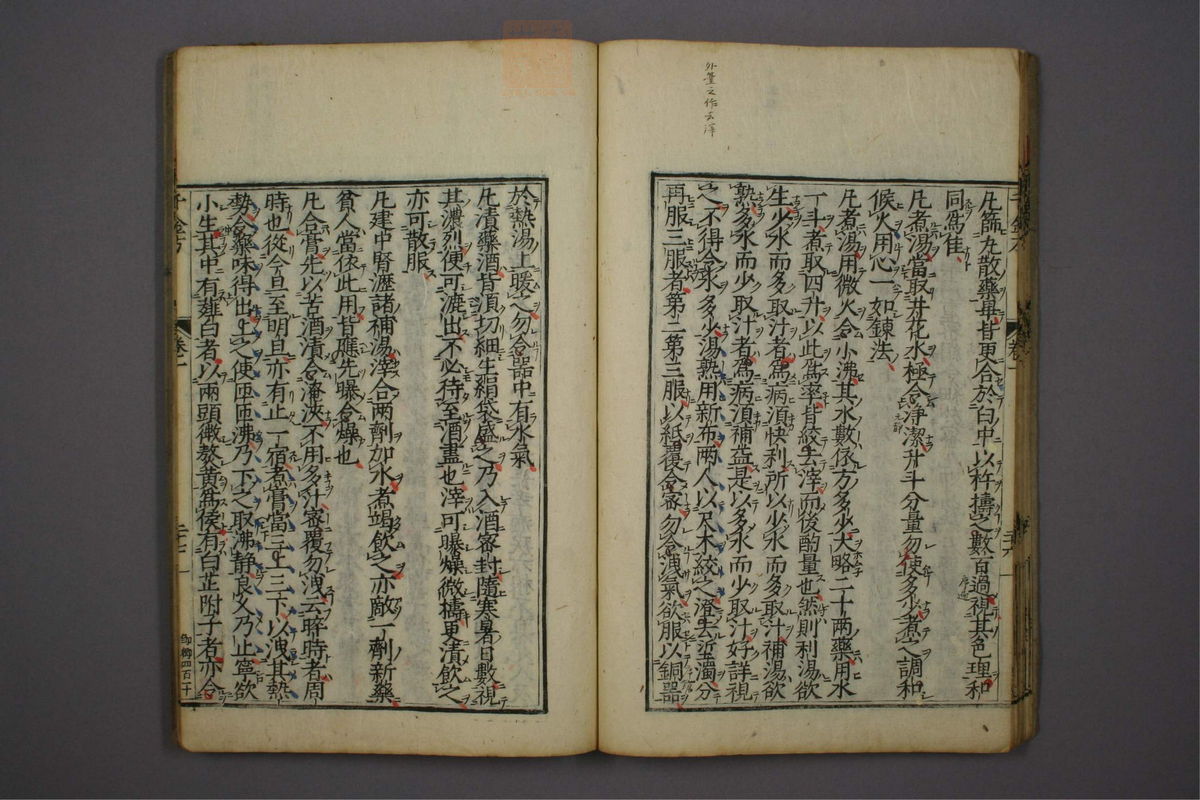 外臺之作去滓
凡篩丸散藥畢皆更合於臼中以杵擣之數百過視其色理和
同爲佳
凡煮湯當取井花水極令淨潔升斗分量勿使多少煮之調和
候火用心一如錬法
凡煮湯用微火令小沸其水數依方多少大略二十兩藥用水
一斗煮取四升以此爲率皆絞去滓而後酌量也然則利湯欲
生少水而多取汁者爲病須快利所以少水而多取汁補湯欲
熟多水而少取汁者爲病須補益是以多水而少取汁好詳視
之不得令水多少湯熟用新布兩人以尺木絞之澄去垽濁分
再服三服者第二第三服以紙覆令密勿令洩氣欲服以銅器
千金方 卷一 二十六
於熱湯上暖之勿令器中有水氣
凡漬藥酒皆須切細生絹袋盛之乃入酒密封隨寒暑日數視
其濃烈便可漉出不必待至酒盡也滓可曝燥微擣更漬飲之
亦可散服
凡建中腎瀝諸補湯滓合兩劑加水煮竭飲之亦敵一劑新藥
貧人當依此用皆應先曝令燥也
凡合膏先以苦酒漬令淹浹不用多汁密覆勿洩云晬時者周
時也從今旦至明旦亦有止一宿煮膏當三上三下以洩其熱
勢令藥味得出上之使匝匝沸乃下之取沸靜良久乃止寧欲
小生其中有薤白者以兩頭微焦黃爲候有白芷附子者亦令
千金方 卷一 二十七